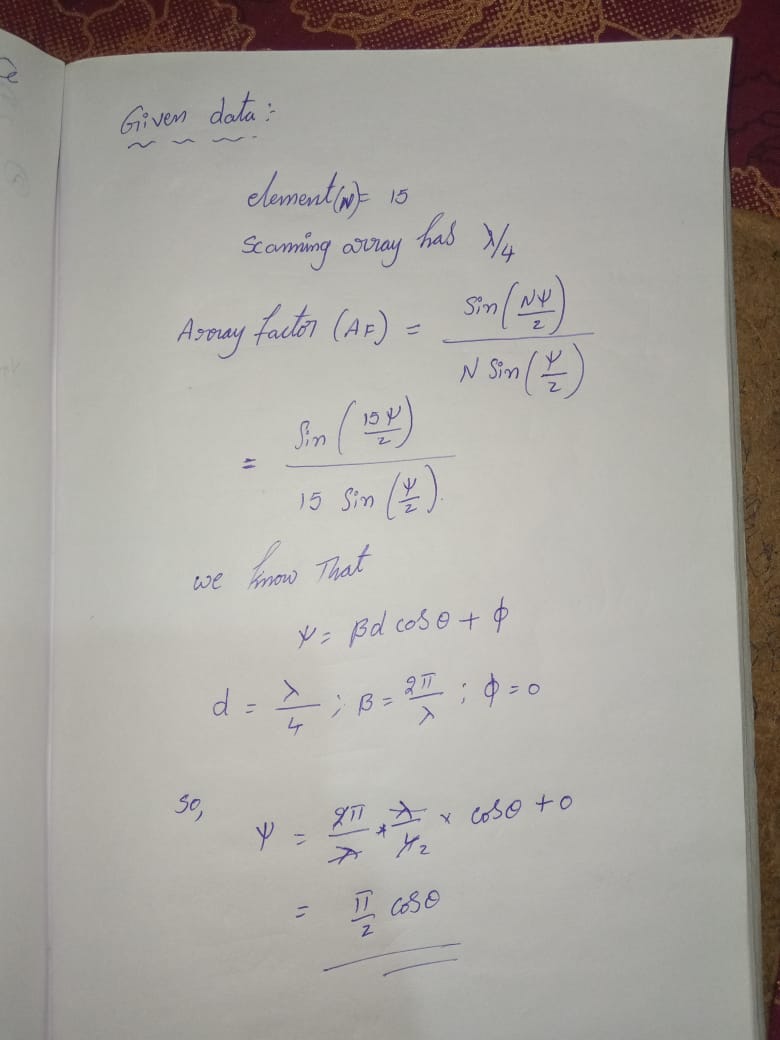 Given data :
element(N) = 15
Scanning array has λ/4
Array factor (AF) = Sin(NΨ/2) / N Sin(Ψ/2)
= Sin(15Ψ/2) / 15 Sin(Ψ/2).
we know That
Ψ = βd cosθ + ϕ
d = λ/4 ; β = 2π/λ ; ϕ = 0
So,
Ψ = 2π/λ * λ/4 2 × cosθ + 0
= π/2 cosθ